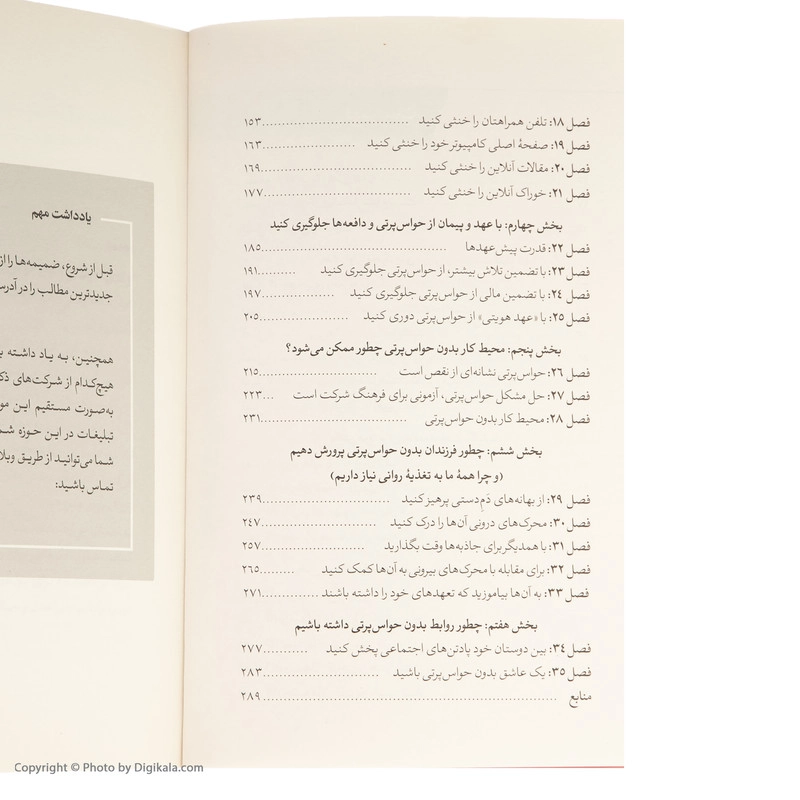 فصل ۱۸: تلفن همراهتان را خنثی کنید ........ ۱۵۳
فصل ۱۹: صفحهٔ اصلی کامپیوتر خود را خنثی کنید ........ ۱۶۳
فصل ۲۰: مقالات آنلاین را خنثی کنید ........ ۱۶۹
فصل ۲۱: خوراک آنلاین را خنثی کنید ........ ۱۷۷
بخش چهارم: با عهد و پیمان از حواس‌پرتی و دافعه‌ها جلوگیری کنید
فصل ۲۲: قدرت پیش‌عهدها ........ ۱۸۵
فصل ۲۳: با تضمین تلاش بیشتر، از حواس‌پرتی جلوگیری کنید ........ ۱۹۱
فصل ۲۴: با تضمین مالی از حواس‌پرتی جلوگیری کنید ........ ۱۹۷
فصل ۲۵: با «عهد هویتی» از حواس‌پرتی دوری کنید ........ ۲۰۵
بخش پنجم: محیط کار بدون حواس‌پرتی چطور ممکن می‌شود؟
فصل ۲۶: حواس‌پرتی نشانه‌ای از نقص است ........ ۲۱۵
فصل ۲۷: حل مشکل حواس‌پرتی، آزمونی برای فرهنگ شرکت است ... ۲۲۳
فصل ۲۸: محیط کار بدون حواس‌پرتی ........ ۲۳۱
بخش ششم: چطور فرزندان بدون حواس‌پرتی پرورش دهیم
(و چرا همهٔ ما به تغذیهٔ روانی نیاز داریم)
فصل ۲۹: از بهانه‌های دَمِ‌دستی پرهیز کنید ........ ۲۳۹
فصل ۳۰: محرک‌های درونی آن‌ها را درک کنید ........ ۲۴۷
فصل ۳۱: با همدیگر برای جاذبه‌ها وقت بگذارید ........ ۲۵۷
فصل ۳۲: برای مقابله با محرک‌های بیرونی به آن‌ها کمک کنید ........ ۲۶۵
فصل ۳۳: به آن‌ها بیاموزید که تعهدهای خود را داشته باشند ........ ۲۷۱
بخش هفتم: چطور روابط بدون حواس‌پرتی داشته باشیم
فصل ۳۴: بین دوستان خود پادتن‌های اجتماعی پخش کنید ........ ۲۷۷
فصل ۳۵: یک عاشق بدون حواس‌پرتی باشید ........ ۲۸۳
منابع ........ ۲۸۹
یادداشت مهم
قبل از شروع، ضمیمه‌ها را از
جدیدترین مطالب را در آدرس
همچنین، به یاد داشته
هیچ‌کدام از شرکت‌های
به‌صورت مستقیم این
تبلیغات در این حوزه
شما می‌توانید از طریق
تماس باشید:
Copyright © Photo by Digikala.com